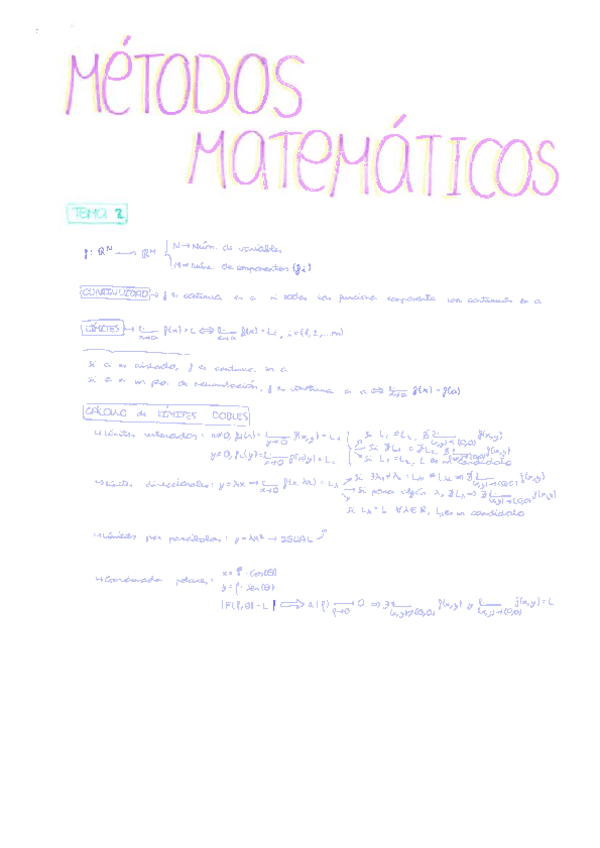 MÉTODOS
MATEMÁTICOS
TEMA 2
f: ℝᴺ → ℝᴹ { N → Núm. de variables
M → Núm. de componentes (fᵢ)
CONTINUIDAD → f es continua en a si todas sus funciones componente son continuas en a
LÍMITES → lim x→a f(x) = L ⟺ lim x→a fᵢ(x) = Lᵢ, i = (1, 2, ...m)
Si a es aislado, f es continua en a
Si a es un pto. de acumulación, f es continua en a ⟺ lim x→a f(x) = f(a)
CÁLCULO de LÍMITES DOBLES
↳ Límites reiterados: x≠0, f₁(x) = lim y→0 f(x,y) = L₁ Si L₁ ≠ L₂, ∄ lim (x,y)→(0,0) f(x,y)
y≠0, f₂(y) = lim x→0 f(x,y) = L₂ Si L₁ = L₂, L es un candidato
↳ Límites direccionales: y = λx ⇒ lim x→0 f(x, λx) = Lλ Si ∃ λ₁ ≠ λ₂ : Lλ₁ ≠ Lλ₂ ⇒ ∄ lim (x,y)→(0,0) f(x,y)
Si para algún λ, ∄ Lλ ⇒ ∄ lim (x,y)→(0,0) f(x,y)
Si Lλ = L ∀λ∈ℝ, L es un candidato
↳ Límites por parábolas: y = λx² → IGUAL
↳ Coordenadas polares: x = ρ · cos(θ)
y = ρ · sen(θ)
|F(ρ,θ) - L| ⟹ a(ρ) ρ→0 → 0 ⇒ ∃ lim (x,y)→(0,0) f(x,y) y lim (x,y)→(0,0) f(x,y) = L